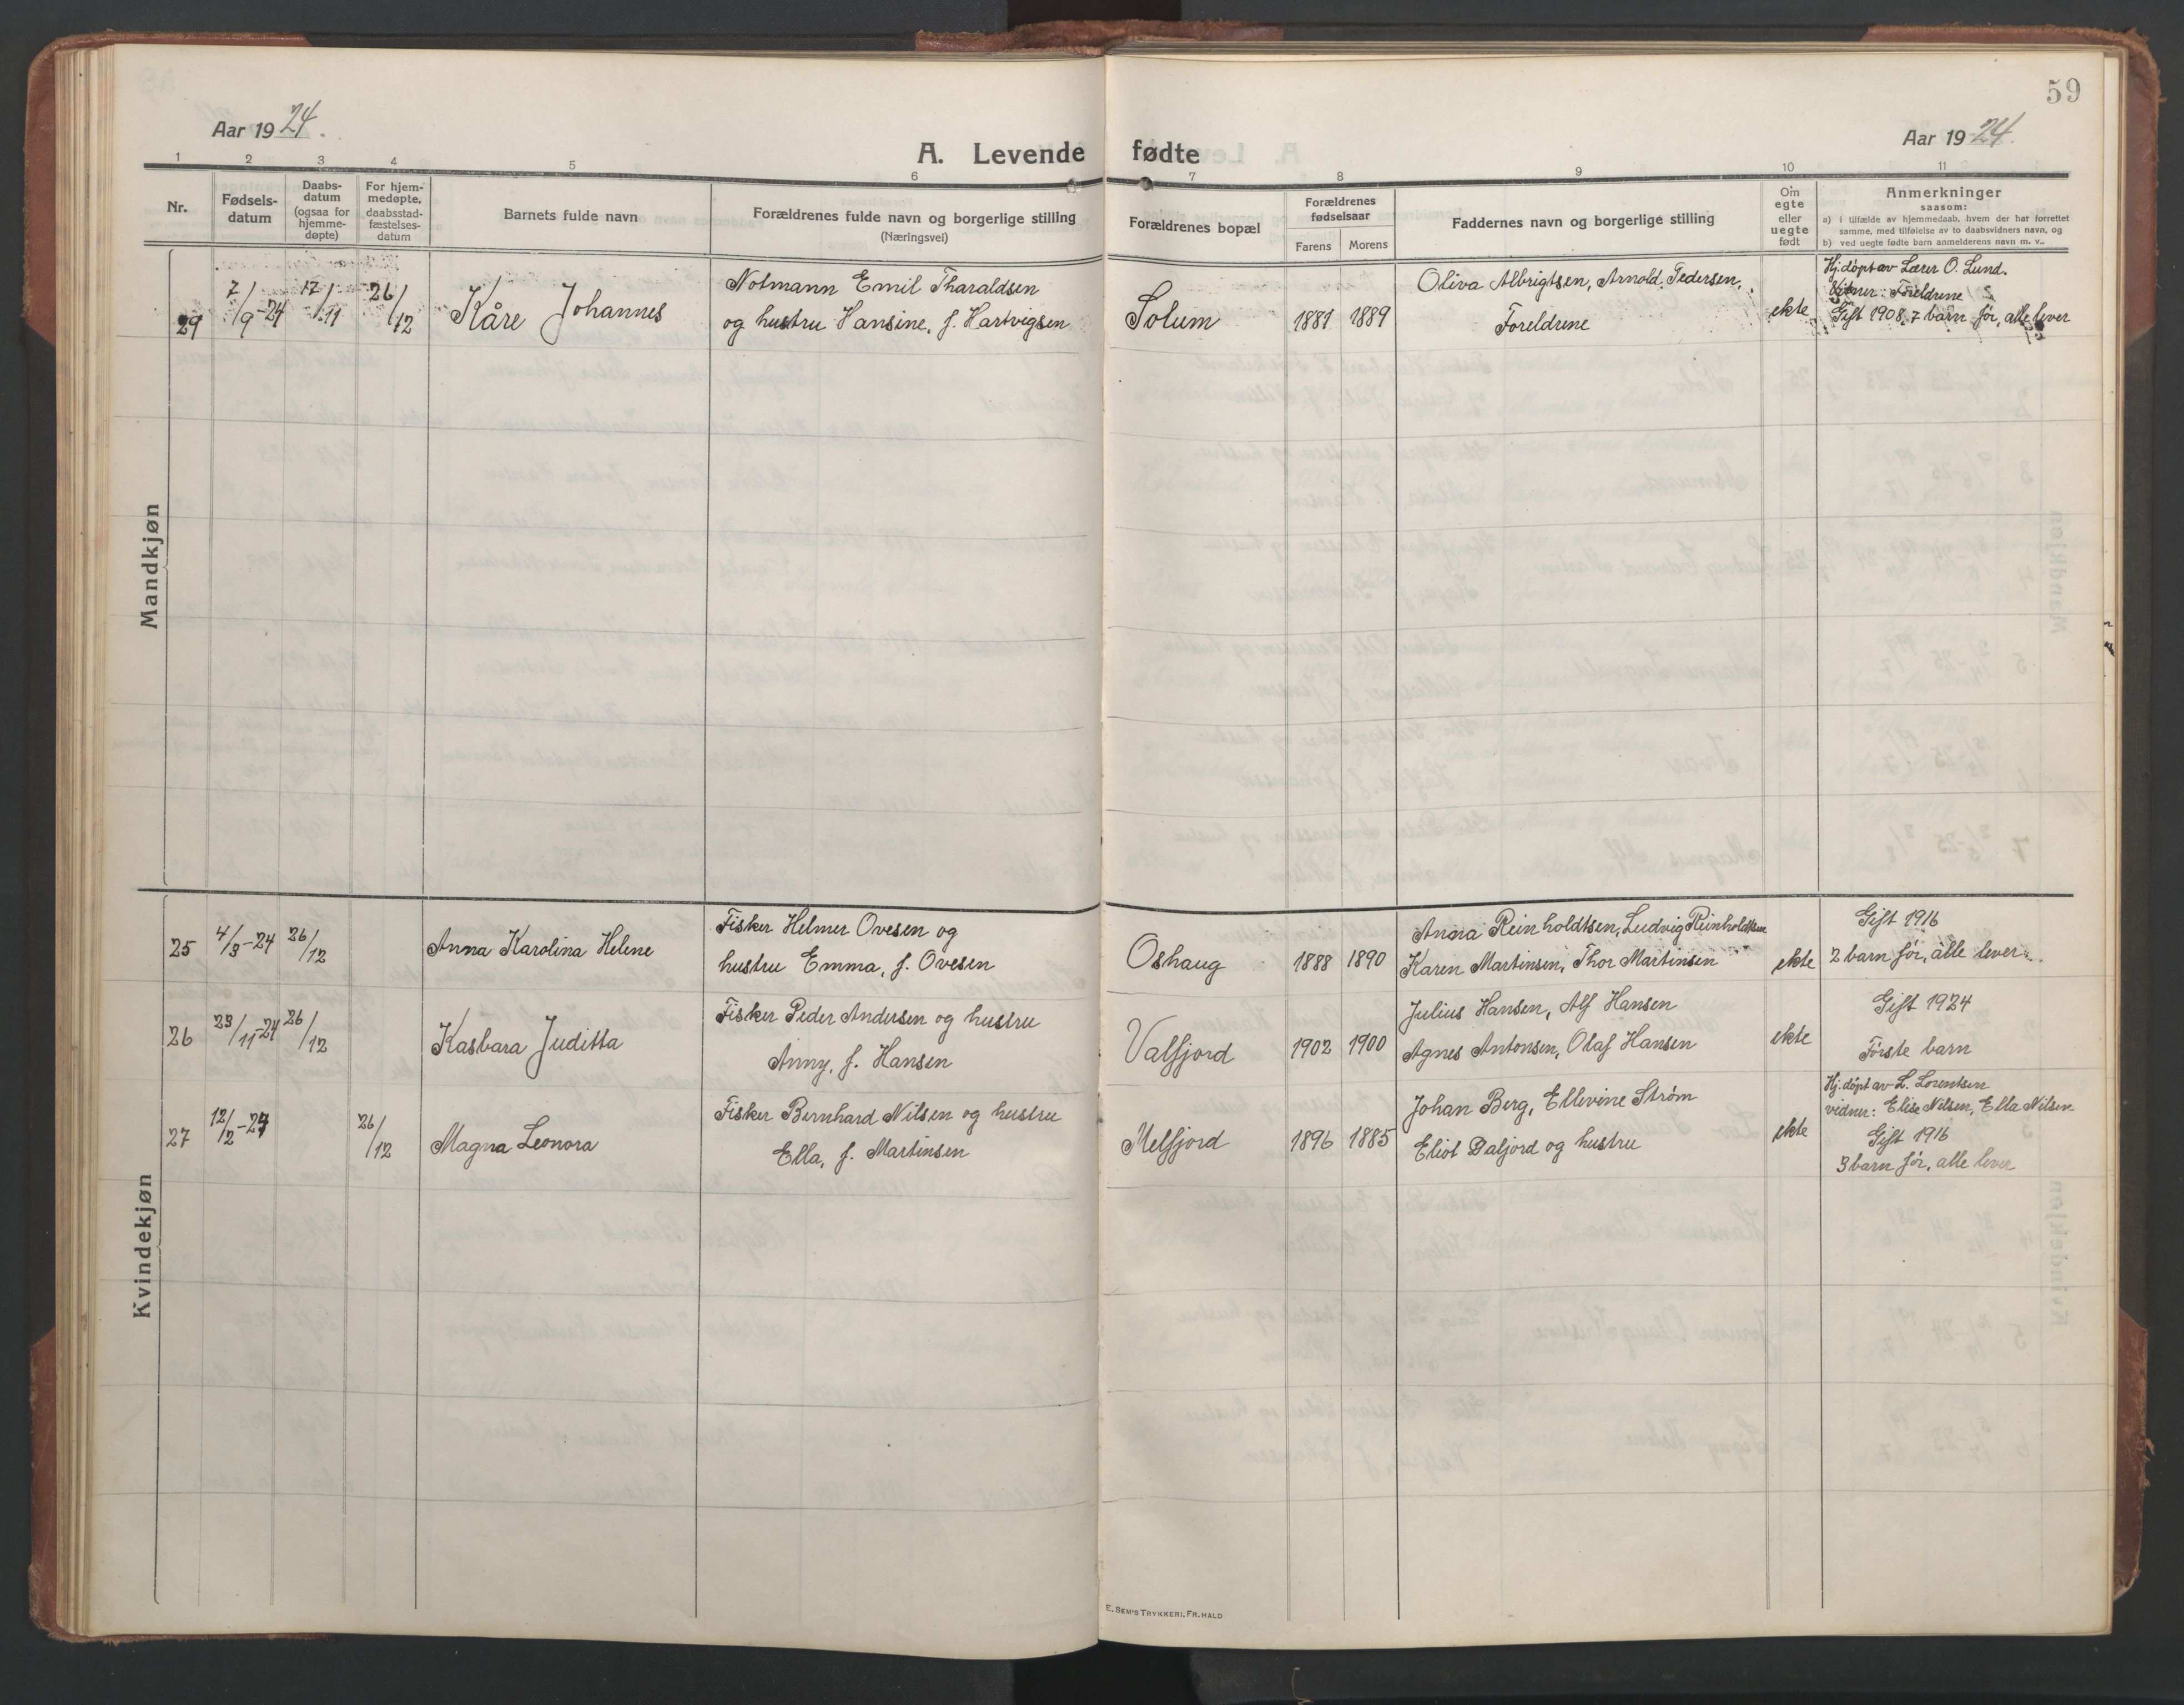 59
Aar 1924.
Aar 1924.
A. Levende fødte
1 2 3 4 5 6 7 8 9 10 11
Nr.
Fødsels-
datum
Daabs-
datum
(ogsaa for
hjemme-
døpte)
For hjem-
medøpte,
daabsstad-
fæstelses-
datum
Barnets fulde navn
Forældrenes fulde navn og borgerlige stilling
(Næringsvei)
Forældrenes bopæl
Forældrenes
fødselsaar
Farens Morens
Faddernes navn og borgerlige stilling
Om
egte
eller
uegte
født
Anmerkninger
saasom:
a) i tilfælde av hjemmedaab, hvem der har forrettet
samme, med tilføielse av to daabsvidners navn, og
b) ved uegte fødte barn anmelderens navn m. v..
Mandkjøn
29 7/9-24 17/11 26/12 Kåre Johannes
Notmann Emil Tharaldsen
og hustru Hansine, f. Hartvigsen
Solum 1881 1889
Oliva Albrigtsen, Arnold Pedersen,
Foreldrene
ekte
Hj.døpt av Lærer O. Lund.
Vitner: Foreldrene
Gift 1908, 7 barn før, alle lever
Kvindekjøn
25 4/9-24 26/12 Anna Karolina Helene
Fisker Helmer Ovesen og
hustru Emma, f. Ovesen
Oshaug 1888 1890
Anna Reinholdtsen, Ludvig Reinholdtsen
Karen Martinsen, Thor Martinsen
ekte
Gift 1916
2 barn før, alle lever
26 23/11-24 26/12 Kasbara Juditta
Fisker Peder Andersen og hustru
Anny, f. Hansen
Valfjord 1902 1900
Julius Hansen, Alf Hansen
Agnes Antonsen, Olaf Hansen
ekte
Gift 1924
Første barn
27 12/2-24 26/12 Magna Leonora
Fisker Bernhard Nilsen og hustru
Ella, f. Martinsen
Melfjord 1896 1885
Johan Berg, Ellevine Strøm
Eliot Daljord og hustru
ekte
Hj.døpt av L. Lorentsen
vidner: Elise Nilsen, Ella Nilsen
Gift 1916
3 barn før, alle lever
E. Sem's Trykkeri, Fr.hald